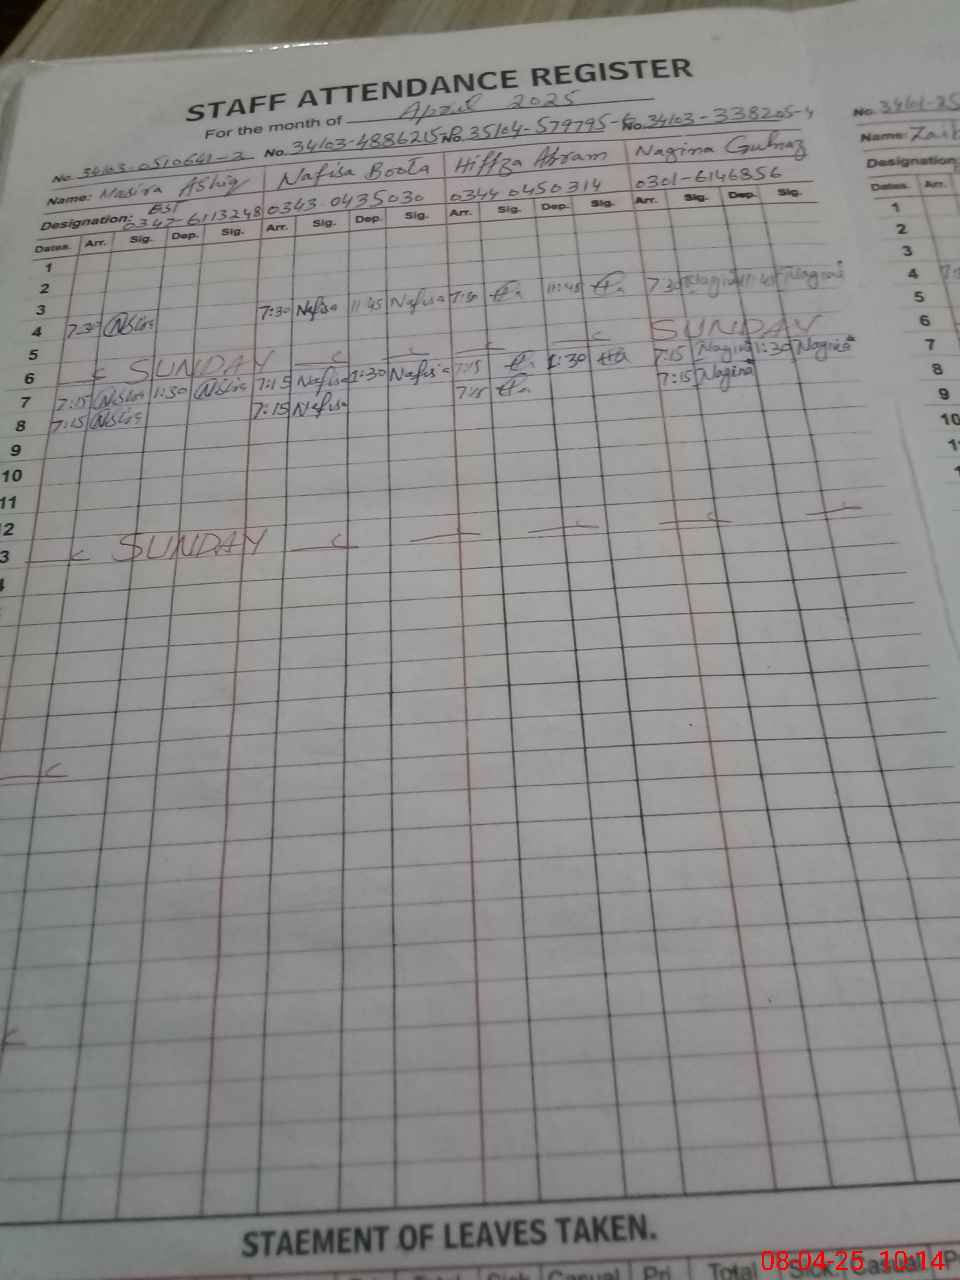 STAFF ATTENDANCE REGISTER
For the month of April 2025
No. 34103-0510641-2 No. 34103-4886215-8 No. 35104-579795-6 No. 34103-338205-4 No. 34101-25
Name: Nasira Ashiq Nafisa Boota Hiffza Akram Nagina Gulnaz Name: Zaib
Designation: EST 0347-6113248 0343-0435030 0344 0450314 0301-6146856 Designation
Dates. Arr. Sig. Dep. Sig. Arr. Sig. Dep. Sig. Arr. Sig. Dep. Sig. Arr. Sig. Dep. Sig. Dates. Arr.
1 1
2 2
3 3
4 7:30 7:30 Nafisa 11:45 Nafisa 7:30 11:45 7:30 Nagina 11:45 Nagina 4
5 5
6 SUNDAY SUNDAY 6
7 7:15 1:30 7:15 Nafisa 1:30 Nafisa 7:15 1:30 7:15 Nagina 1:30 Nagina 7
8 7:15 7:15 Nafisa 7:15 7:15 Nagina 8
9 9
10 10
11
2
3 SUNDAY
STAEMENT OF LEAVES TAKEN.
Sick Casual Pri Total Sick Casual P
08-04-25 10:14